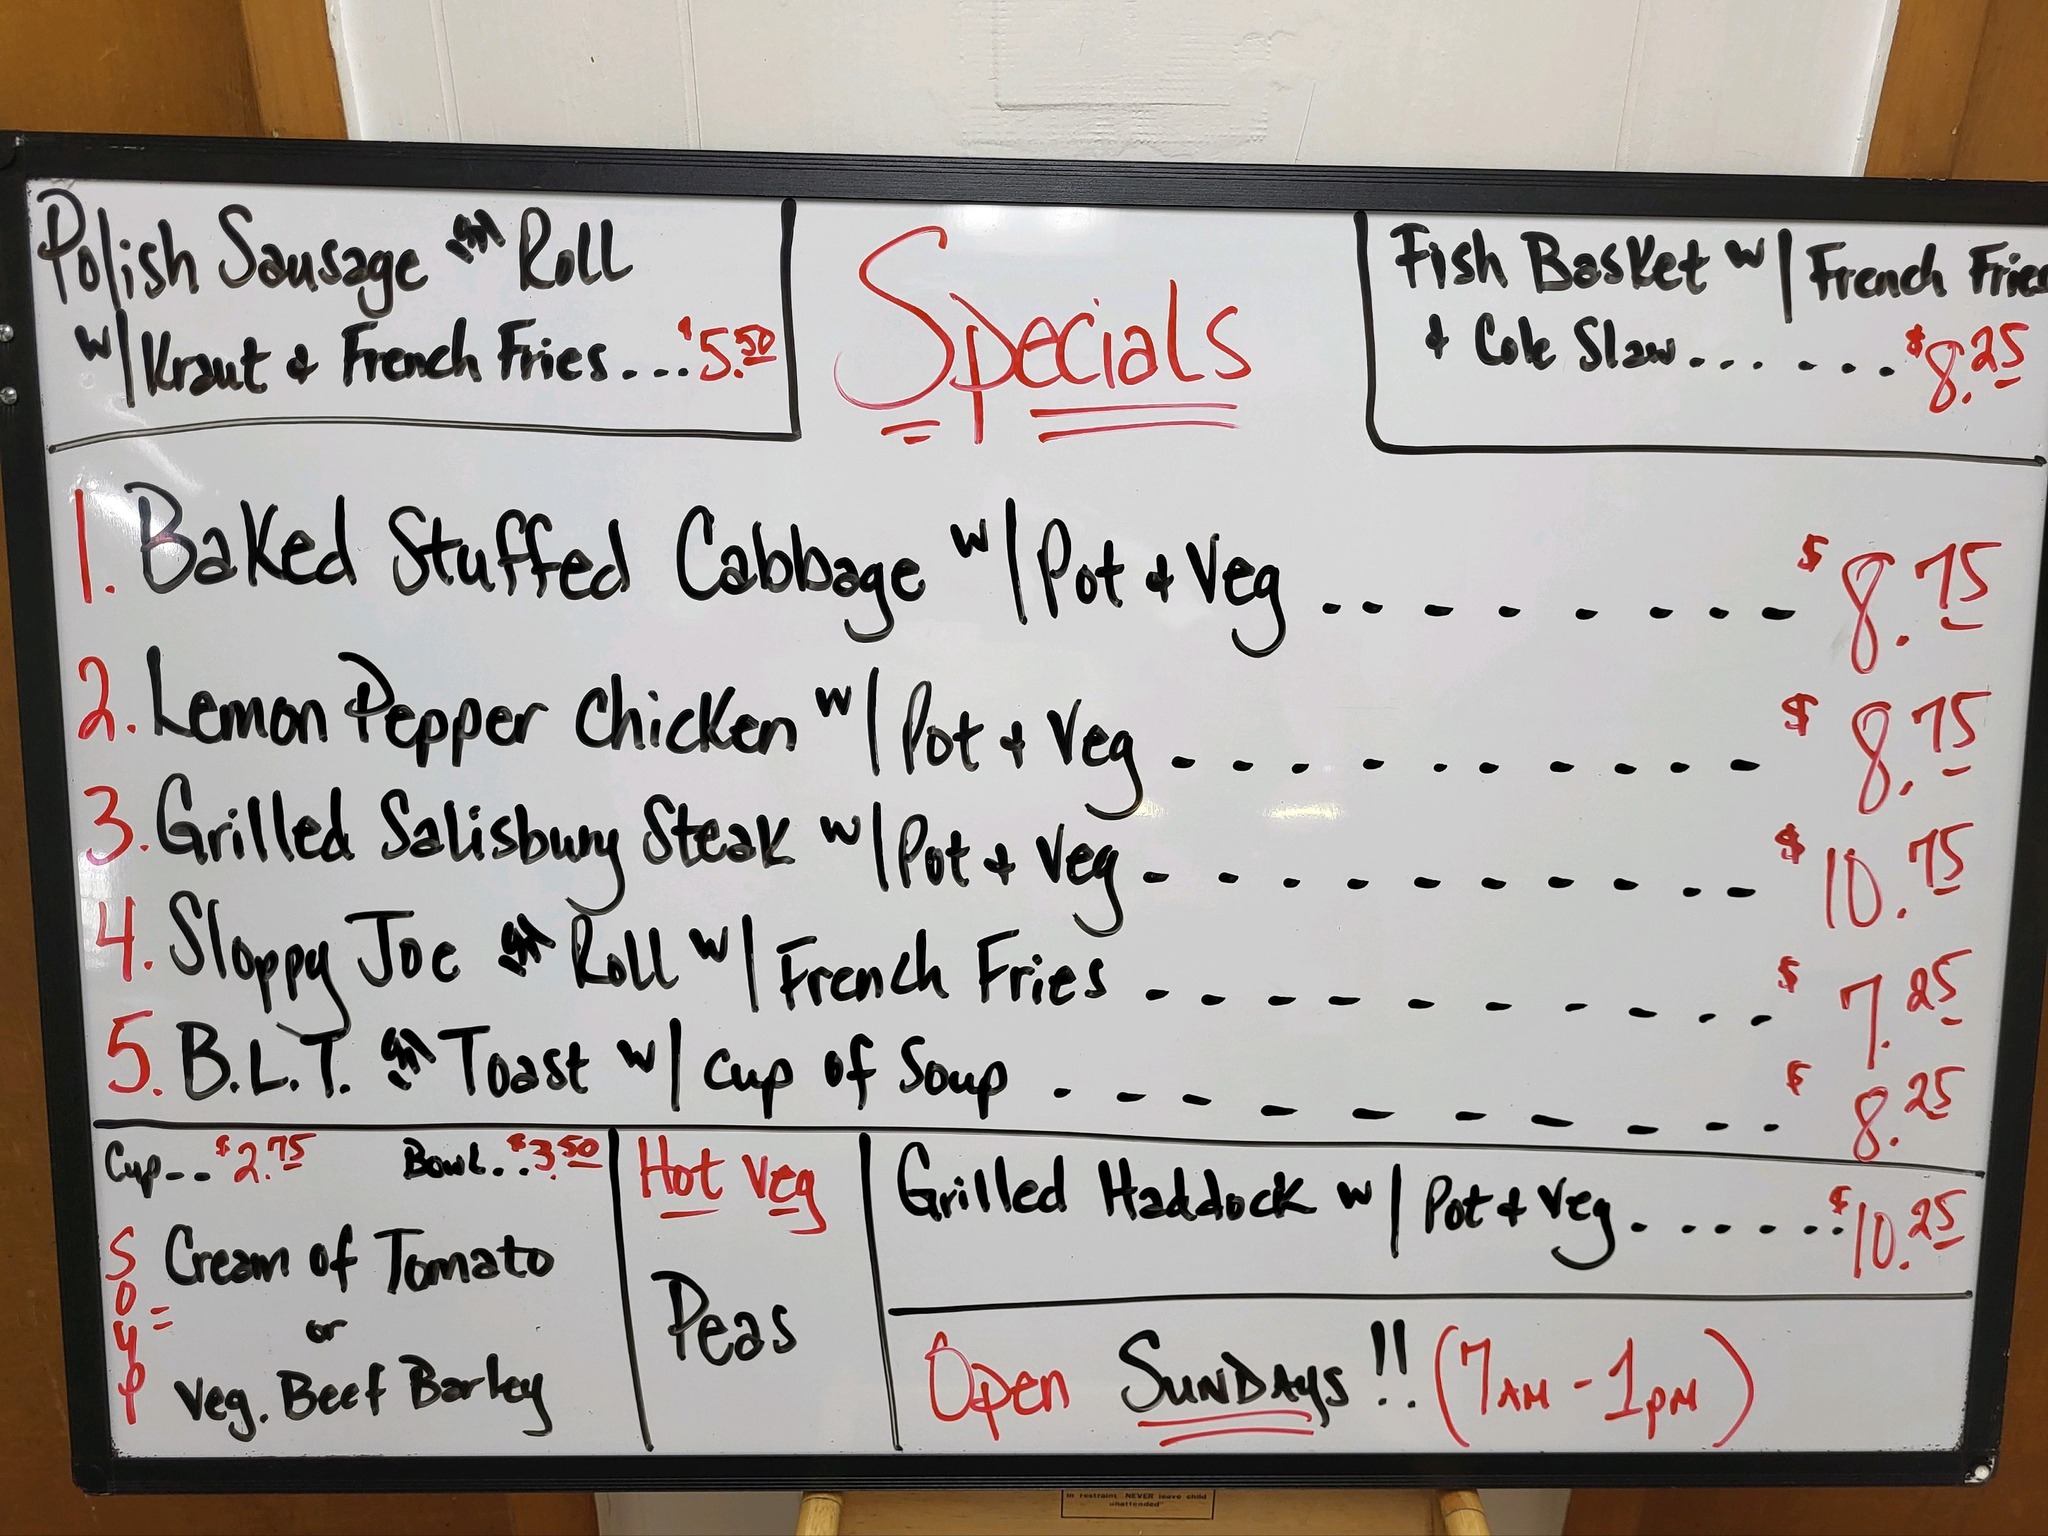 Polish Sausage on Roll
w/ Kraut & French Fries... $5.50
Specials
Fish Basket w/ French Fries
& Cole Slaw....... $8.25
1. Baked Stuffed Cabbage w/ Pot & Veg ........ $8.75
2. Lemon Pepper Chicken w/ Pot & Veg .......... $8.75
3. Grilled Salisbury Steak w/ Pot & Veg .......... $10.75
4. Sloppy Joe on Roll w/ French Fries .......... $7.25
5. B.L.T. on Toast w/ Cup of Soup ......... $8.25
Cup... $2.75 Bowl... $3.50
SOUP = Cream of Tomato
or
Veg. Beef Barley
Hot Veg
Peas
Grilled Haddock w/ Pot & Veg...... $10.25
Open Sundays!! (7AM - 1PM)
in restraint. NEVER leave child
unattended"